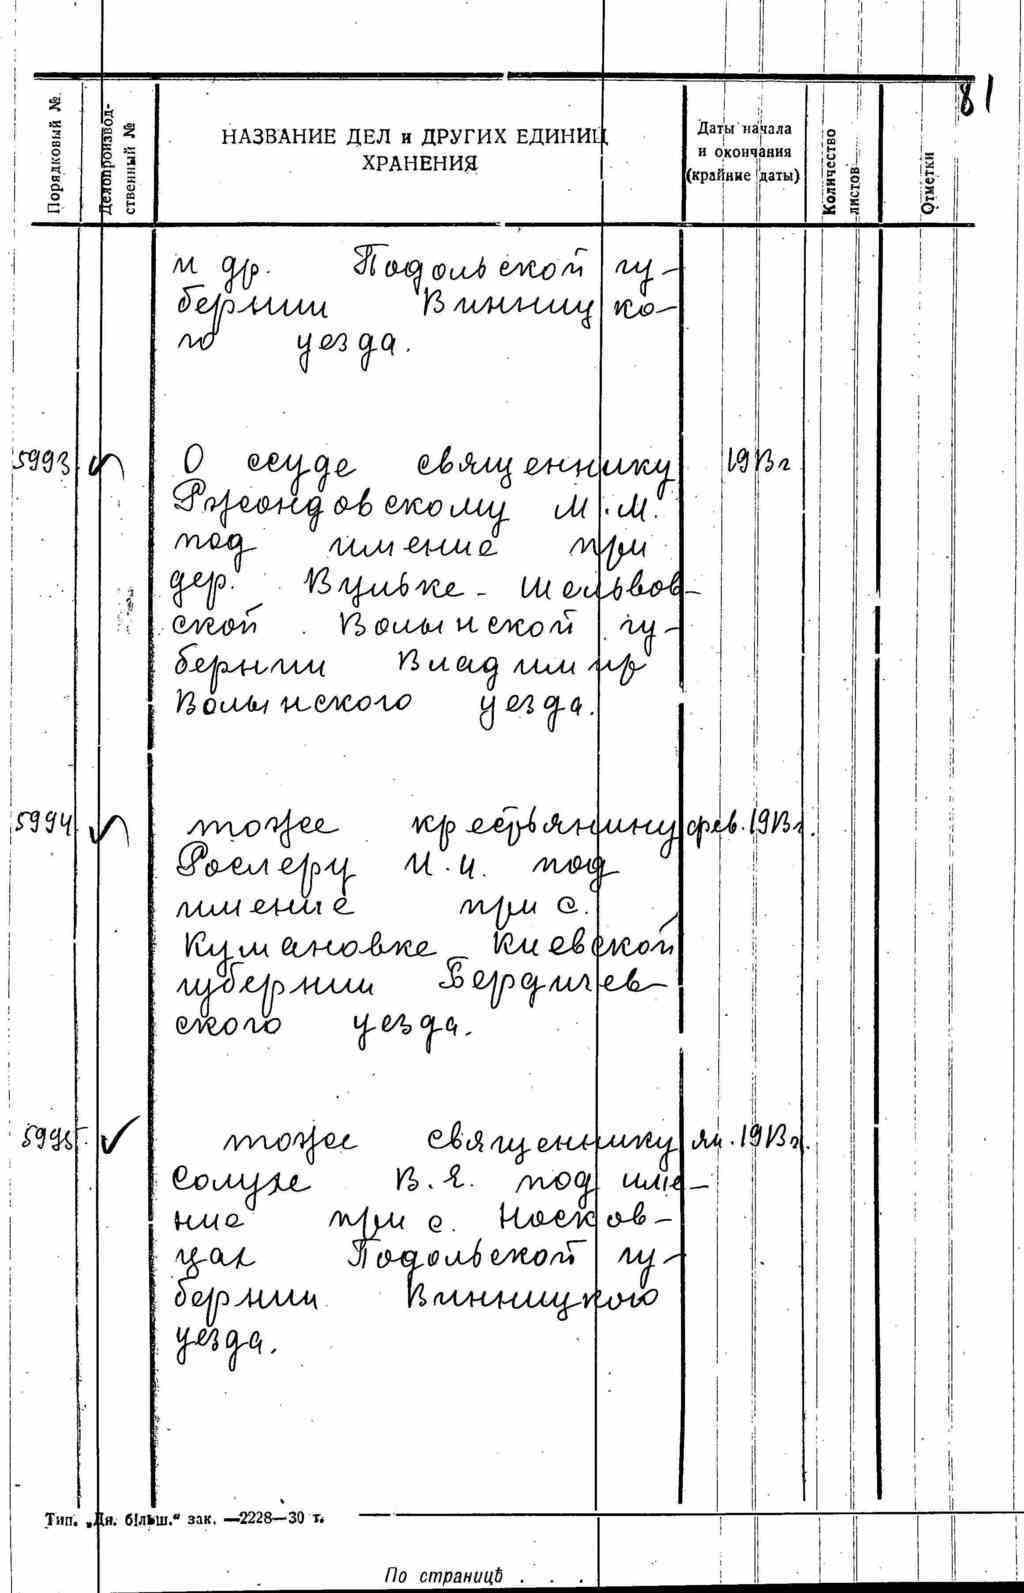 81
Порядковый №
Делопроизвод-
ственный №
НАЗВАНИЕ ДЕЛ и ДРУГИХ ЕДИНИЦ
ХРАНЕНИЯ
Даты начала
и окончания
(крайние даты)
Количество
листов
Отметки
и др. Подольской гу-
бернии Винницко-
го уезда.
5993 О ссуде священнику 1913 г
Ржондовскому М.М.
под имение при
дер. Вульке-Шельвов-
ской Волынской гу-
бернии Владимир
Волынского уезда.
5994 тоже крестьянину фев. 1913 г.
Рослеру И.И. под
имение при с.
Кумановке Киевской
губернии Бердичев-
ского уезда.
5995 тоже священнику ян. 1913 г.
Солухе В.Я. под име-
ние при с. Носков-
цах Подольской гу-
бернии Винницкого
уезда.
Тип. „Дн. більш.“ зак. —2228—30 т.
По страницѣ . . .